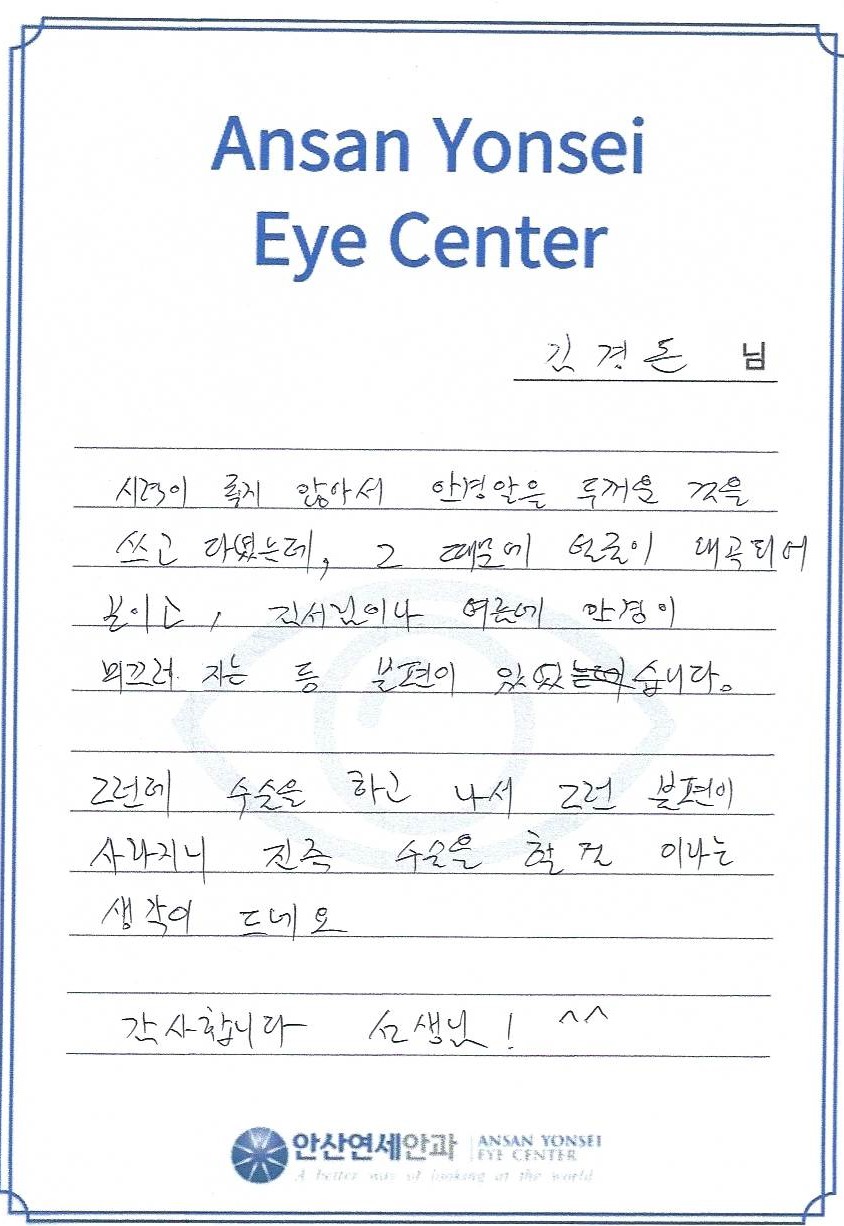 Ansan Yonsei
Eye Center
김경돈 님
시력이 좋지 않아서 안경알을 두꺼운 것을
쓰고 다녔는데, 그 때문에 얼굴이 왜곡되어
보이고, 김서림이나 여름에 안경이
미끄러 지는 등 불편이 있었는데 습니다.
그런데 수술을 하고 나서 그런 불편이
사라지니 진즉 수술을 할 걸 이라는
생각이 드네요
감사합니다 선생님! ^^
안산연세안과 ANSAN YONSEI
EYE CENTER
A better way of looking at the world